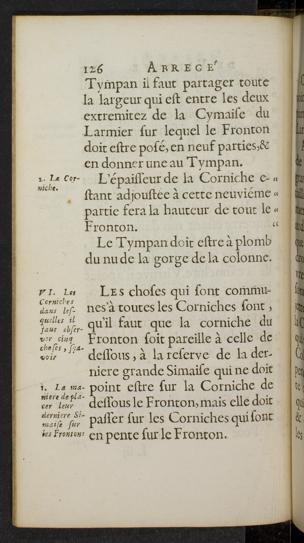 126 ABREGÉ
Tympan il faut partager toute
la largeur qui est entre les deux
extremitez de la Cymaise du
Larmier sur lequel le Fronton
doit estre posé, en neuf parties, &
en donner une au Tympan.
2. La Cor-
niche.
L'épaisseur de la Corniche e- “
stant adjoustée à cette neuviéme “
partie fera la hauteur de tout le “
Fronton. “
Le Tympan doit estre à plomb
du nu de la gorge de la colonne.
VI. Les
Corniches
dans les-
quelles il
faut obser-
ver cinq
choses, sça-
voir
LES choses qui sont commu-
nes à toutes les Corniches sont,
qu'il faut que la corniche du
Fronton soit pareille à celle de
dessous, à la reserve de la der-
niere grande Simaise qui ne doit
point estre sur la Corniche de
dessous le Fronton, mais elle doit
passer sur les Corniches qui sont
en pente sur le Fronton.
1. La ma-
niere de pla-
cer leur
derniere Si-
maise sur
les Frontons